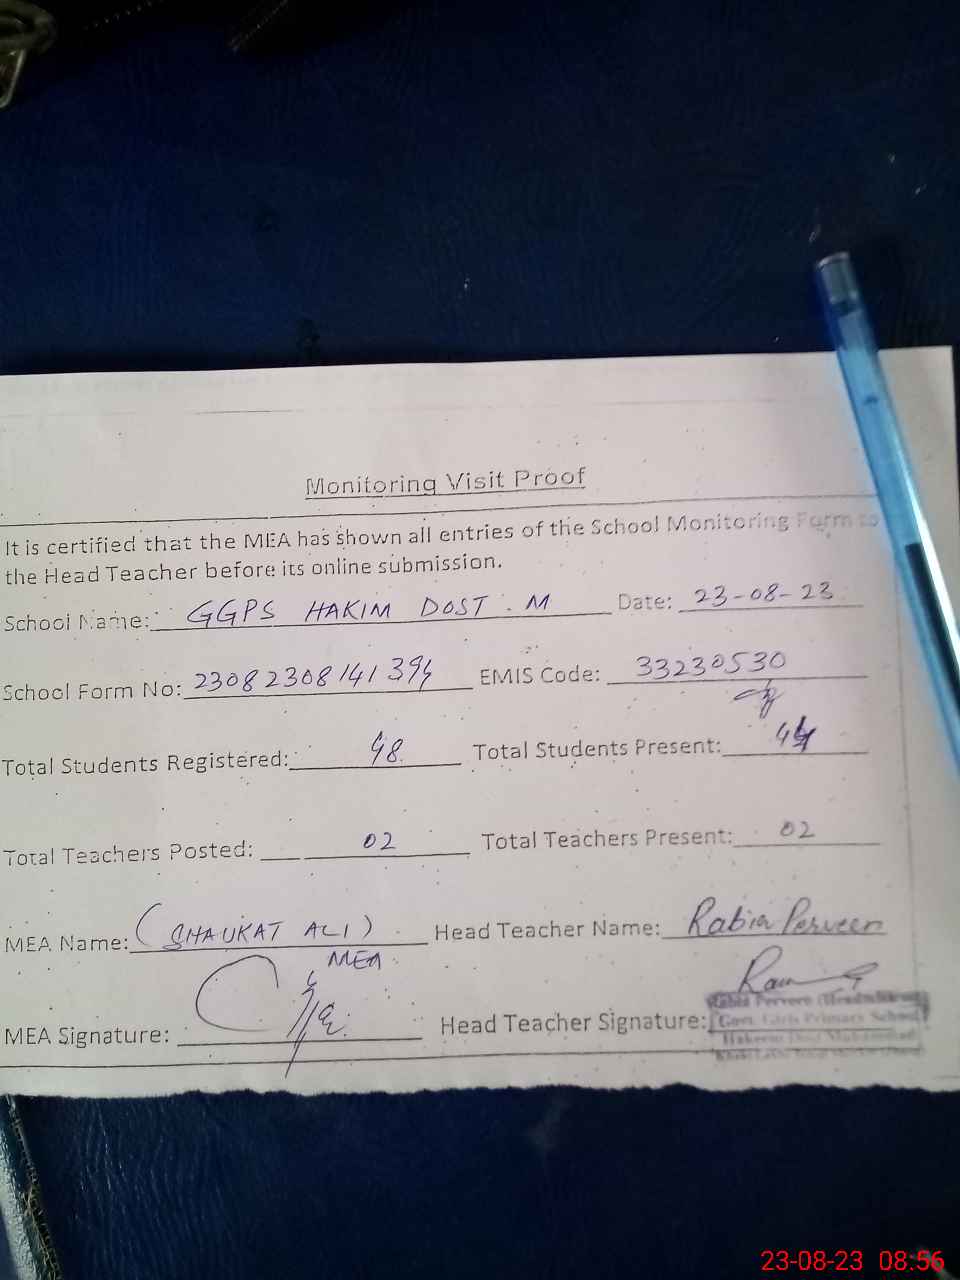 Monitoring Visit Proof
It is certified that the MEA has shown all entries of the School Monitoring Form to
the Head Teacher before its online submission.
School Name: GGPS HAKIM DOST. M Date: 23-08-23
School Form No: 23082308141394 EMIS Code: 33230530
Total Students Registered: 48 Total Students Present: 44
Total Teachers Posted: 02 Total Teachers Present: 02
MEA Name: (SHAUKAT ALI) Head Teacher Name: Rabia Perveen
MEA
MEA Signature: Head Teacher Signature:
Rabia Perveen
Govt. Girls Primary School
23-08-23 08:56